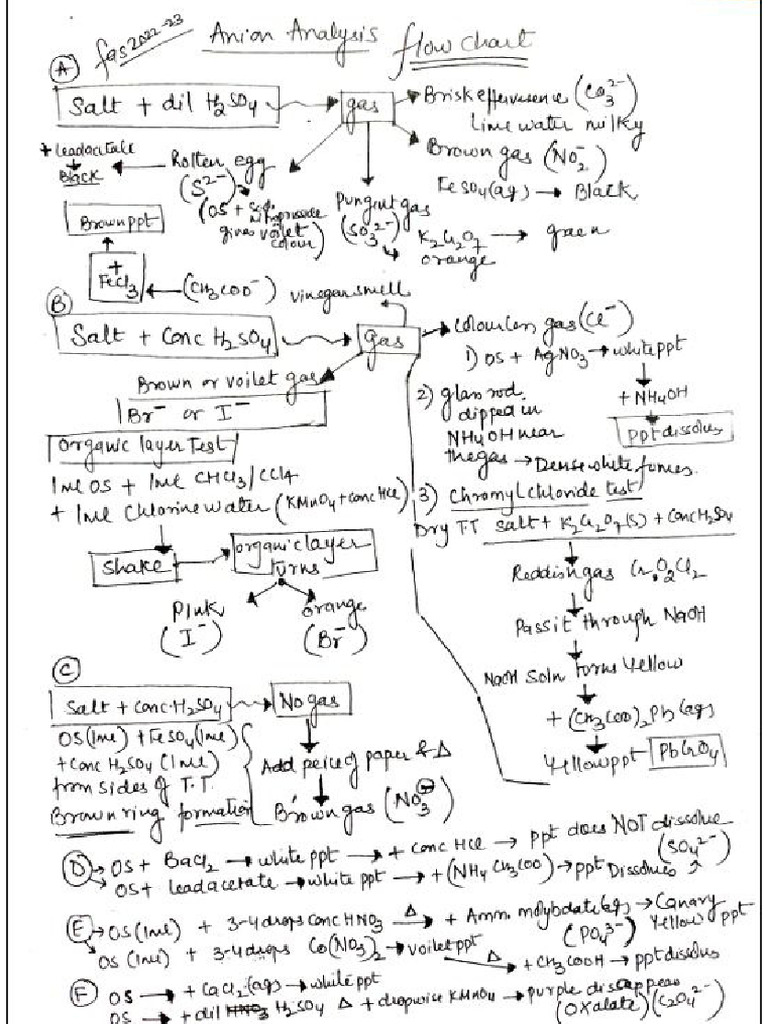 fas 2022-23
Anion Analysis flow chart
A
Salt + dil H2SO4 → gas → Brisk effervesence (CO3^2-)
Lime water milky
Brown gas (NO2^-)
FeSO4 (aq) → Black
+ leadacetate
Black
Rotten egg
(S^2-)
(OS +
gives voilet
colour)
Pungent gas
(SO3^2-)
K2Cr2O7 → green
orange
Brown ppt
+
FeCl3 ← (CH3COO^-) vinegar smell
B
Salt + Conc H2SO4 → gas → Colourless gas (Cl^-)
1) OS + AgNO3 → white ppt
+ NH4OH
ppt dissolves
2) glass rod
dipped in
NH4OH near
the gas → Dense white fumes.
Brown or voilet gas
Br^- or I^-
Organic layer Test
1ml OS + 1ml CHCl3/CCl4
+ 1ml Chlorine water (KMnO4 + conc HCl)
Shake → Organic layer
turns
Pink
(I^-)
orange
(Br^-)
3) Chromyl chloride test
Dry T.T salt + K2Cr2O7(s) + Conc H2SO4
Reddish gas CrO2Cl2
Pass it through NaOH
NaOH Soln turns yellow
+ (CH3COO)2Pb (aq)
Yellow ppt PbCrO4
C
Salt + conc. H2SO4 → No gas
OS (1ml) + FeSO4 (1ml)
+ conc H2SO4 (1ml)
from sides of T.T.
Brown ring formation
Add peice of paper & Δ
Brown gas (NO3^-)
D → OS + BaCl2 → white ppt → + conc HCl → ppt does NOT dissolve
(SO4^2-)
→ OS + leadacetate → white ppt → + (NH4CH3COO) → ppt Dissolves
E → OS (1ml) + 3-4 drops conc HNO3 Δ→ + Amm. molybdate (aq) → Canary
Yellow ppt
(PO4^3-)
OS (1ml) + 3-4 drops Co(NO3)2 → voilet ppt Δ→ + CH3COOH → ppt dissolves
F OS → + CaCl2 (aq) → white ppt
OS → + dil H2SO4 Δ + dropwise KMnO4 → purple disappears
(Oxalate) (C2O4^2-)